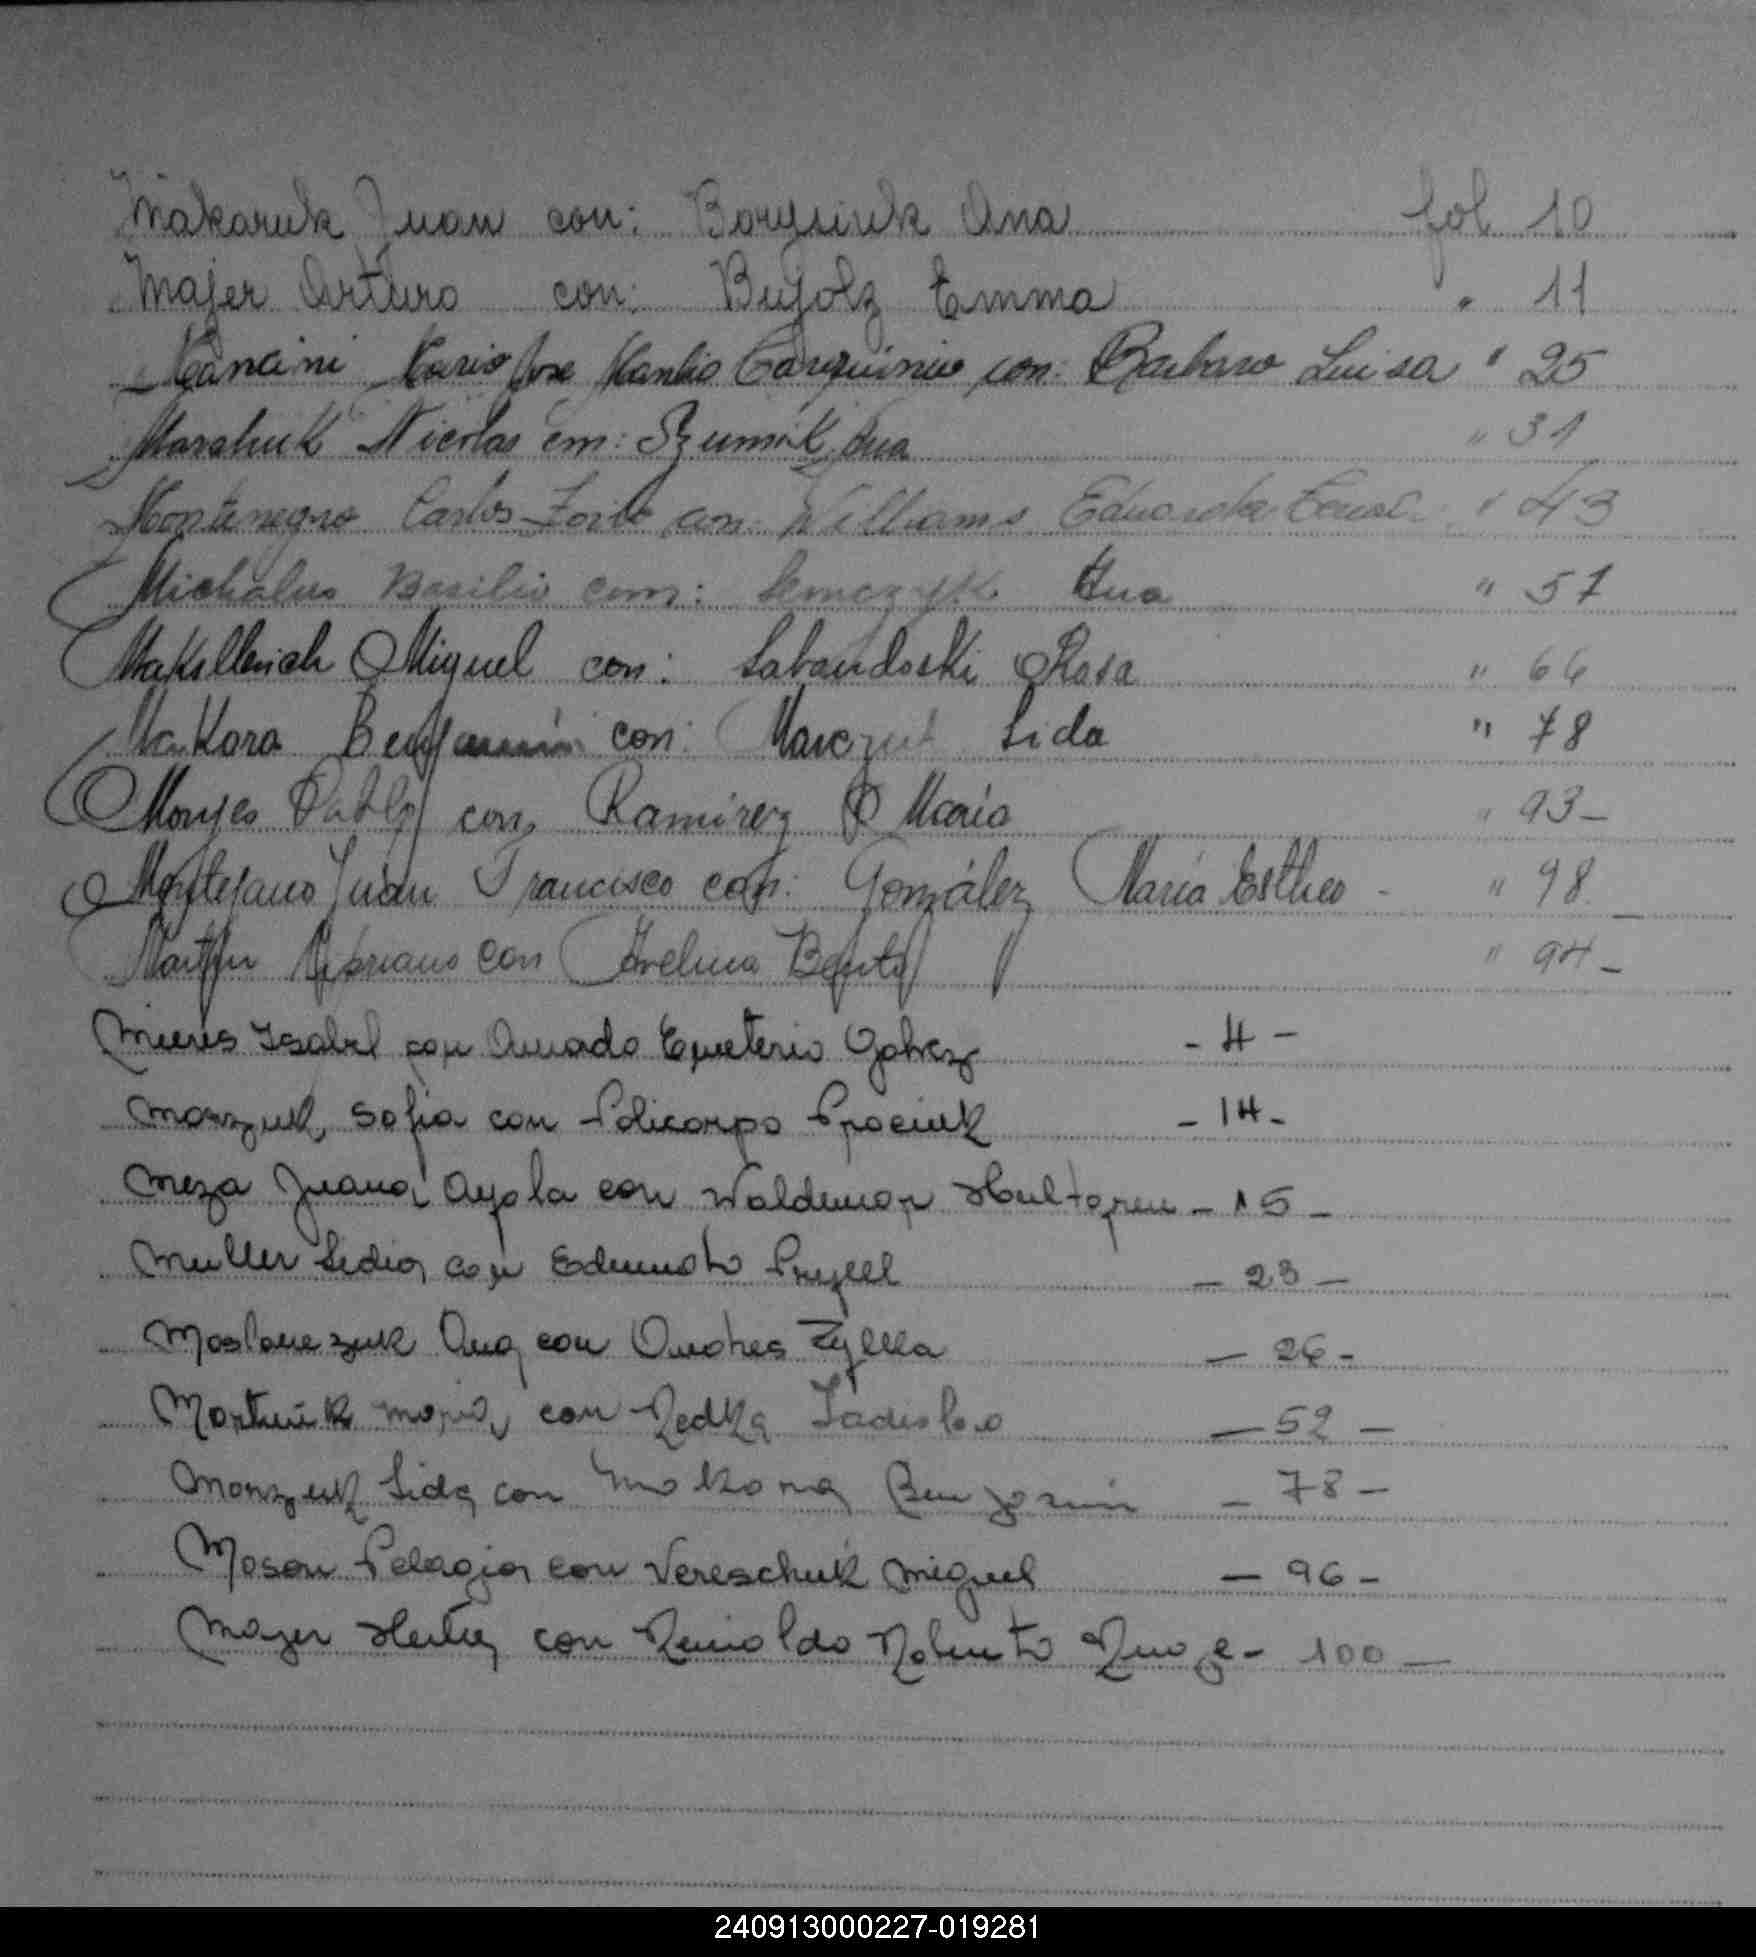 Makaruk Juan con: Borysiuk Ana fol 10
Majer Arturo con: Bujolz Emma " 11
Mancini Mario Jose Manlio Tarquinio con: Barbaro Luisa " 25
Marahuk Nicolas con: Szumik Ana " 31
Montenegro Carlos con: Williams Eduarda " 43
Michalus Basilio con: Semczyk Ana " 57
Miguel con: Sabandoski Rosa " 66
Makara Benjamin con: Marczuk Lida " 78
Monjes Pablo con, Ramirez Maria " 93-
Montejano Juan Francisco con: González María Esther - " 98 -
Martin Cipriano con Avelina Benito " 94-
Mieres Isabel con Amado Emeterio - 4 -
Marzuk, Sofia con Policarpo Prociuk - 14 -
Meza Juana Ayala con Waldemar Hultgren - 15 -
Muller Lidia con Edmundo - 23 -
Ana con Andres Zyllla - 26 -
Martiniuk Maria con Redka Ladislao - 52 -
Marzuk Lida con Makara Benjamin - 78 -
Mason Pelagia con Vereschuk Miguel - 96 -
Mayer con Reinoldo Roberto - 100 -
240913000227-019281